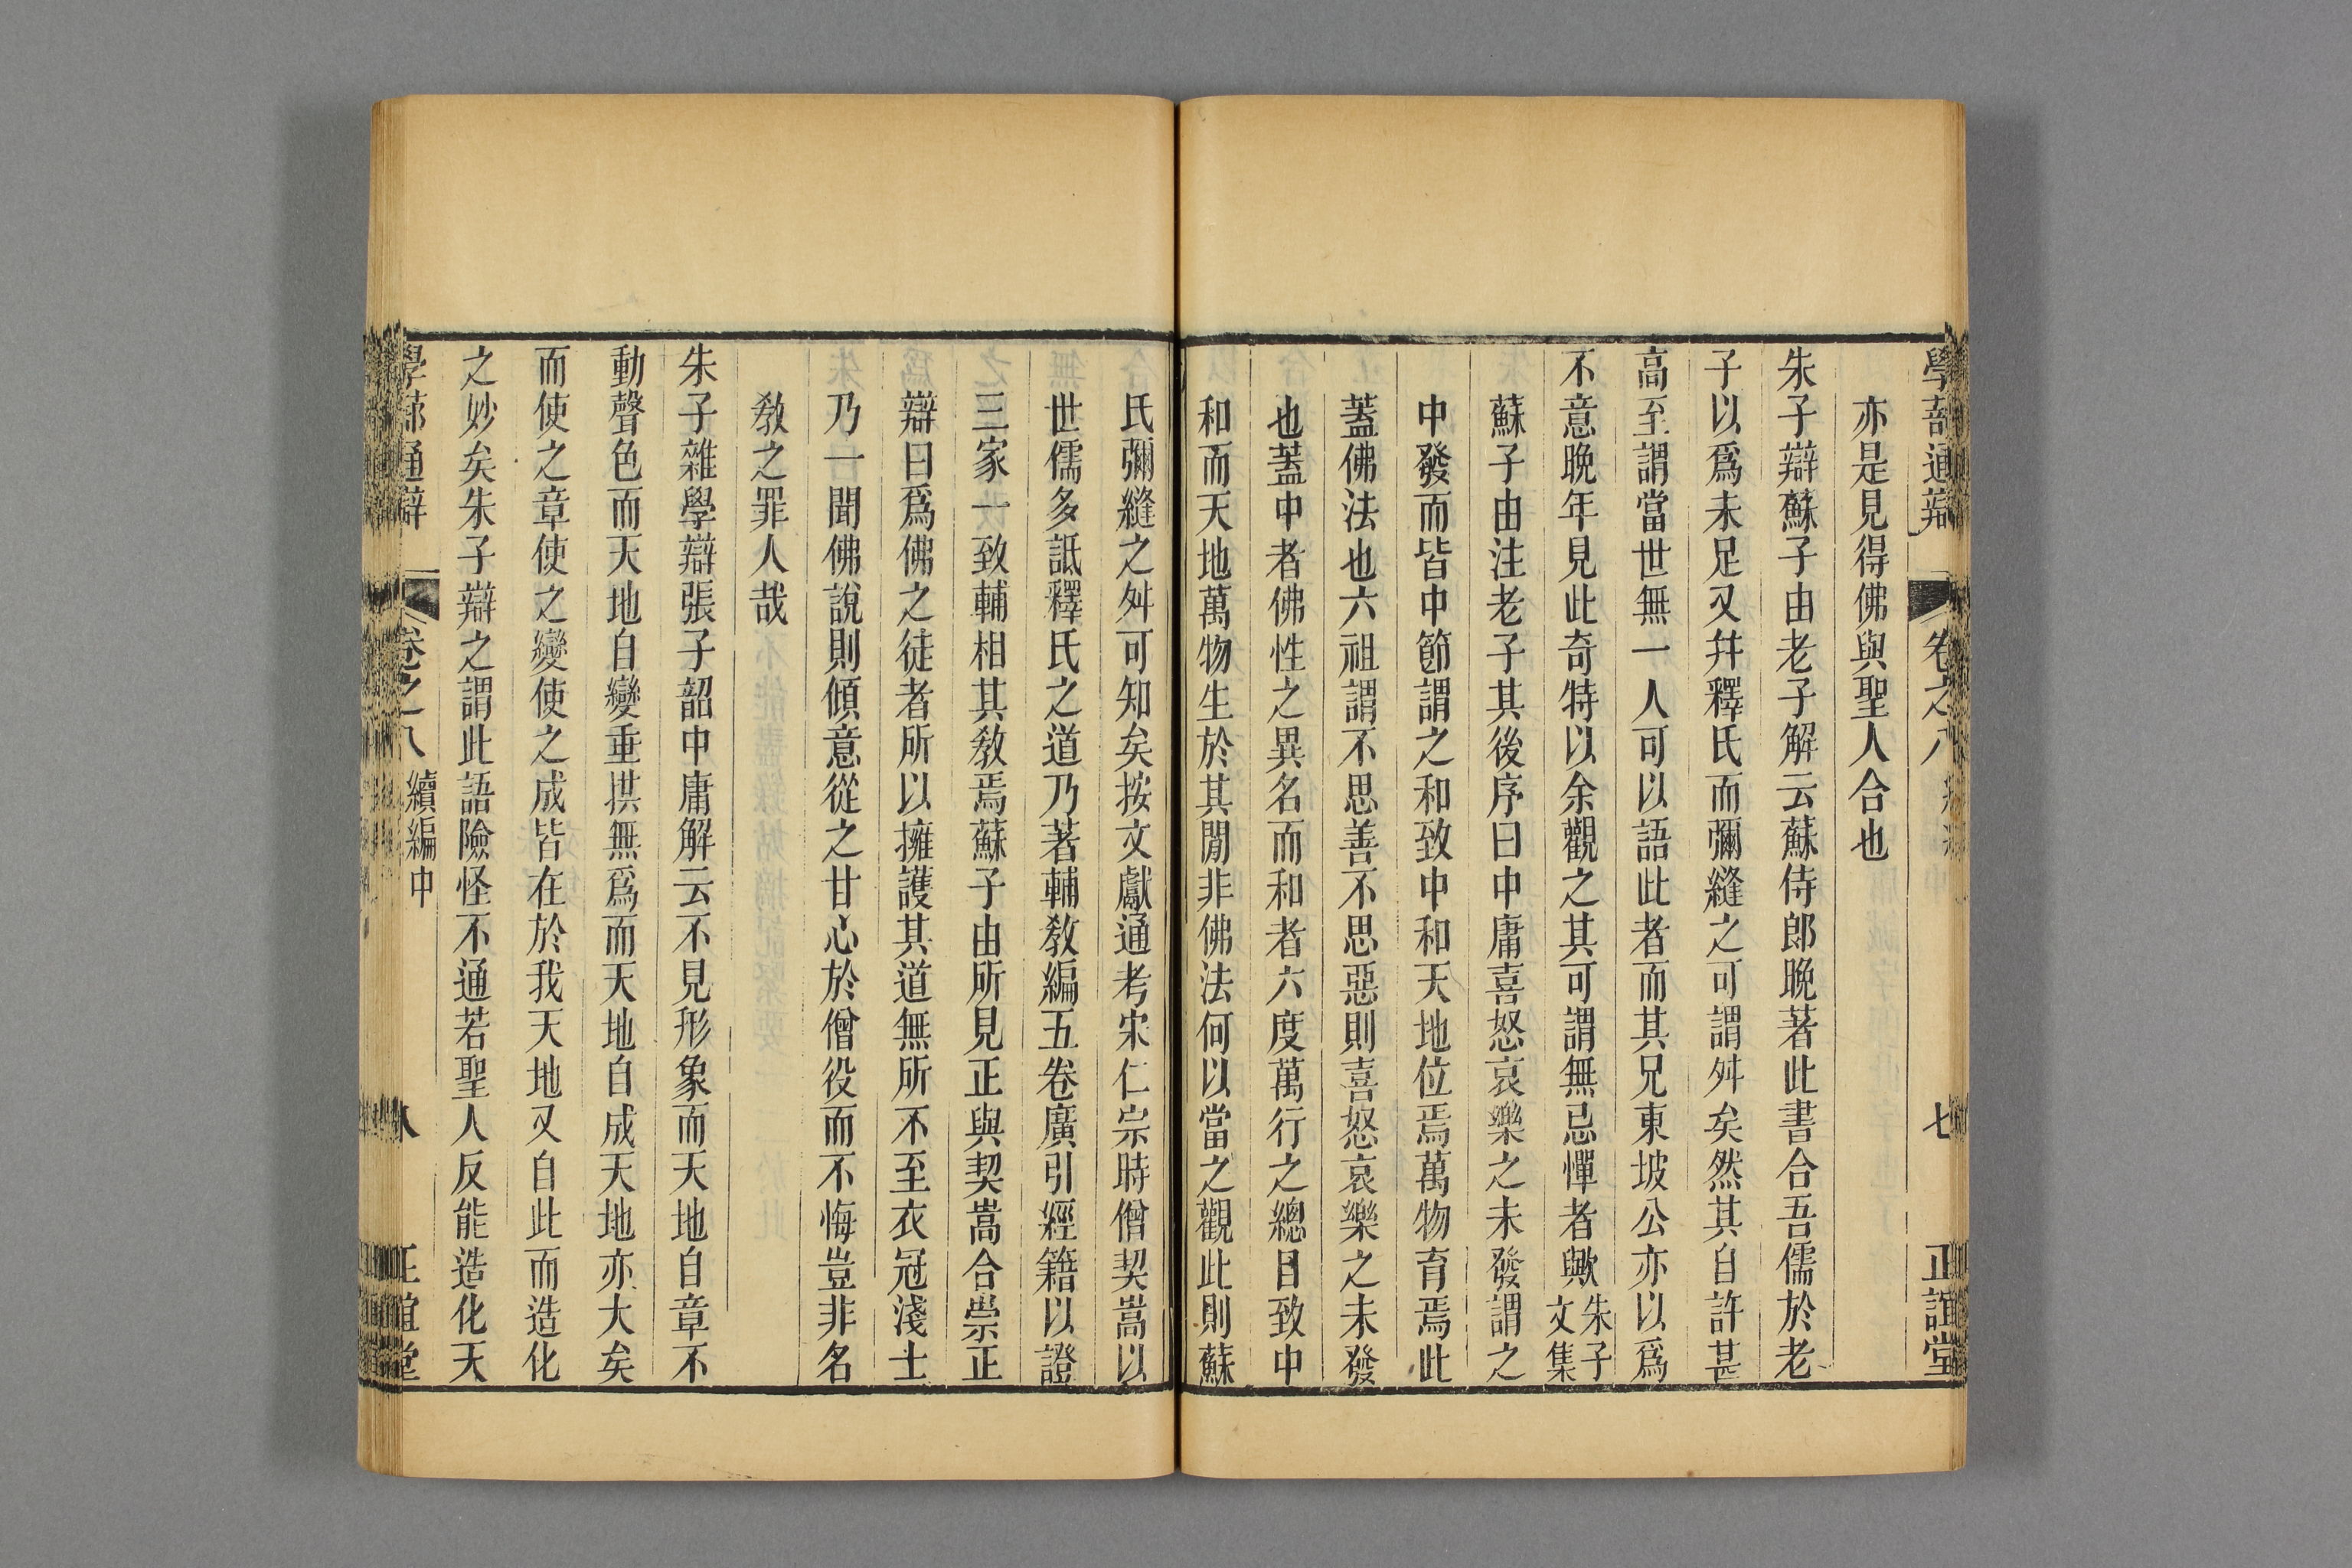 學蔀通辯 卷之八 七 正誼堂
亦是見得佛與聖人合也
朱子辯蘇子由老子解云蘇侍郎晚著此書合吾儒於老
子以爲未足又幷釋氏而彌縫之可謂舛矣然其自許甚
高至謂當世無一人可以語此者而其兄東坡公亦以爲
不意晚年見此奇特以余觀之其可謂無忌憚者歟朱子文集
蘇子由注老子其後序曰中庸喜怒哀樂之未發謂之
中發而皆中節謂之和致中和天地位焉萬物育焉此
蓋佛法也六祖謂不思善不思惡則喜怒哀樂之未發
也蓋中者佛性之異名而和者六度萬行之總目致中
和而天地萬物生於其閒非佛法何以當之觀此則蘇
氏彌縫之舛可知矣按文獻通考宋仁宗時僧契嵩以
世儒多詆釋氏之道乃著輔敎編五卷廣引經籍以證
三家一致輔相其敎焉蘇子由所見正與契嵩合崇正
辯曰爲佛之徒者所以擁護其道無所不至衣冠淺士
乃一聞佛說則傾意從之甘心於僧役而不悔豈非名
敎之罪人哉
朱子雜學辯張子韶中庸解云不見形象而天地自章不
動聲色而天地自變垂拱無爲而天地自成天地亦大矣
而使之章使之變使之成皆在於我天地又自此而造化
之妙矣朱子辯之謂此語險怪不通若聖人反能造化天
學蔀通辯 卷之八 續編中 八 正誼堂